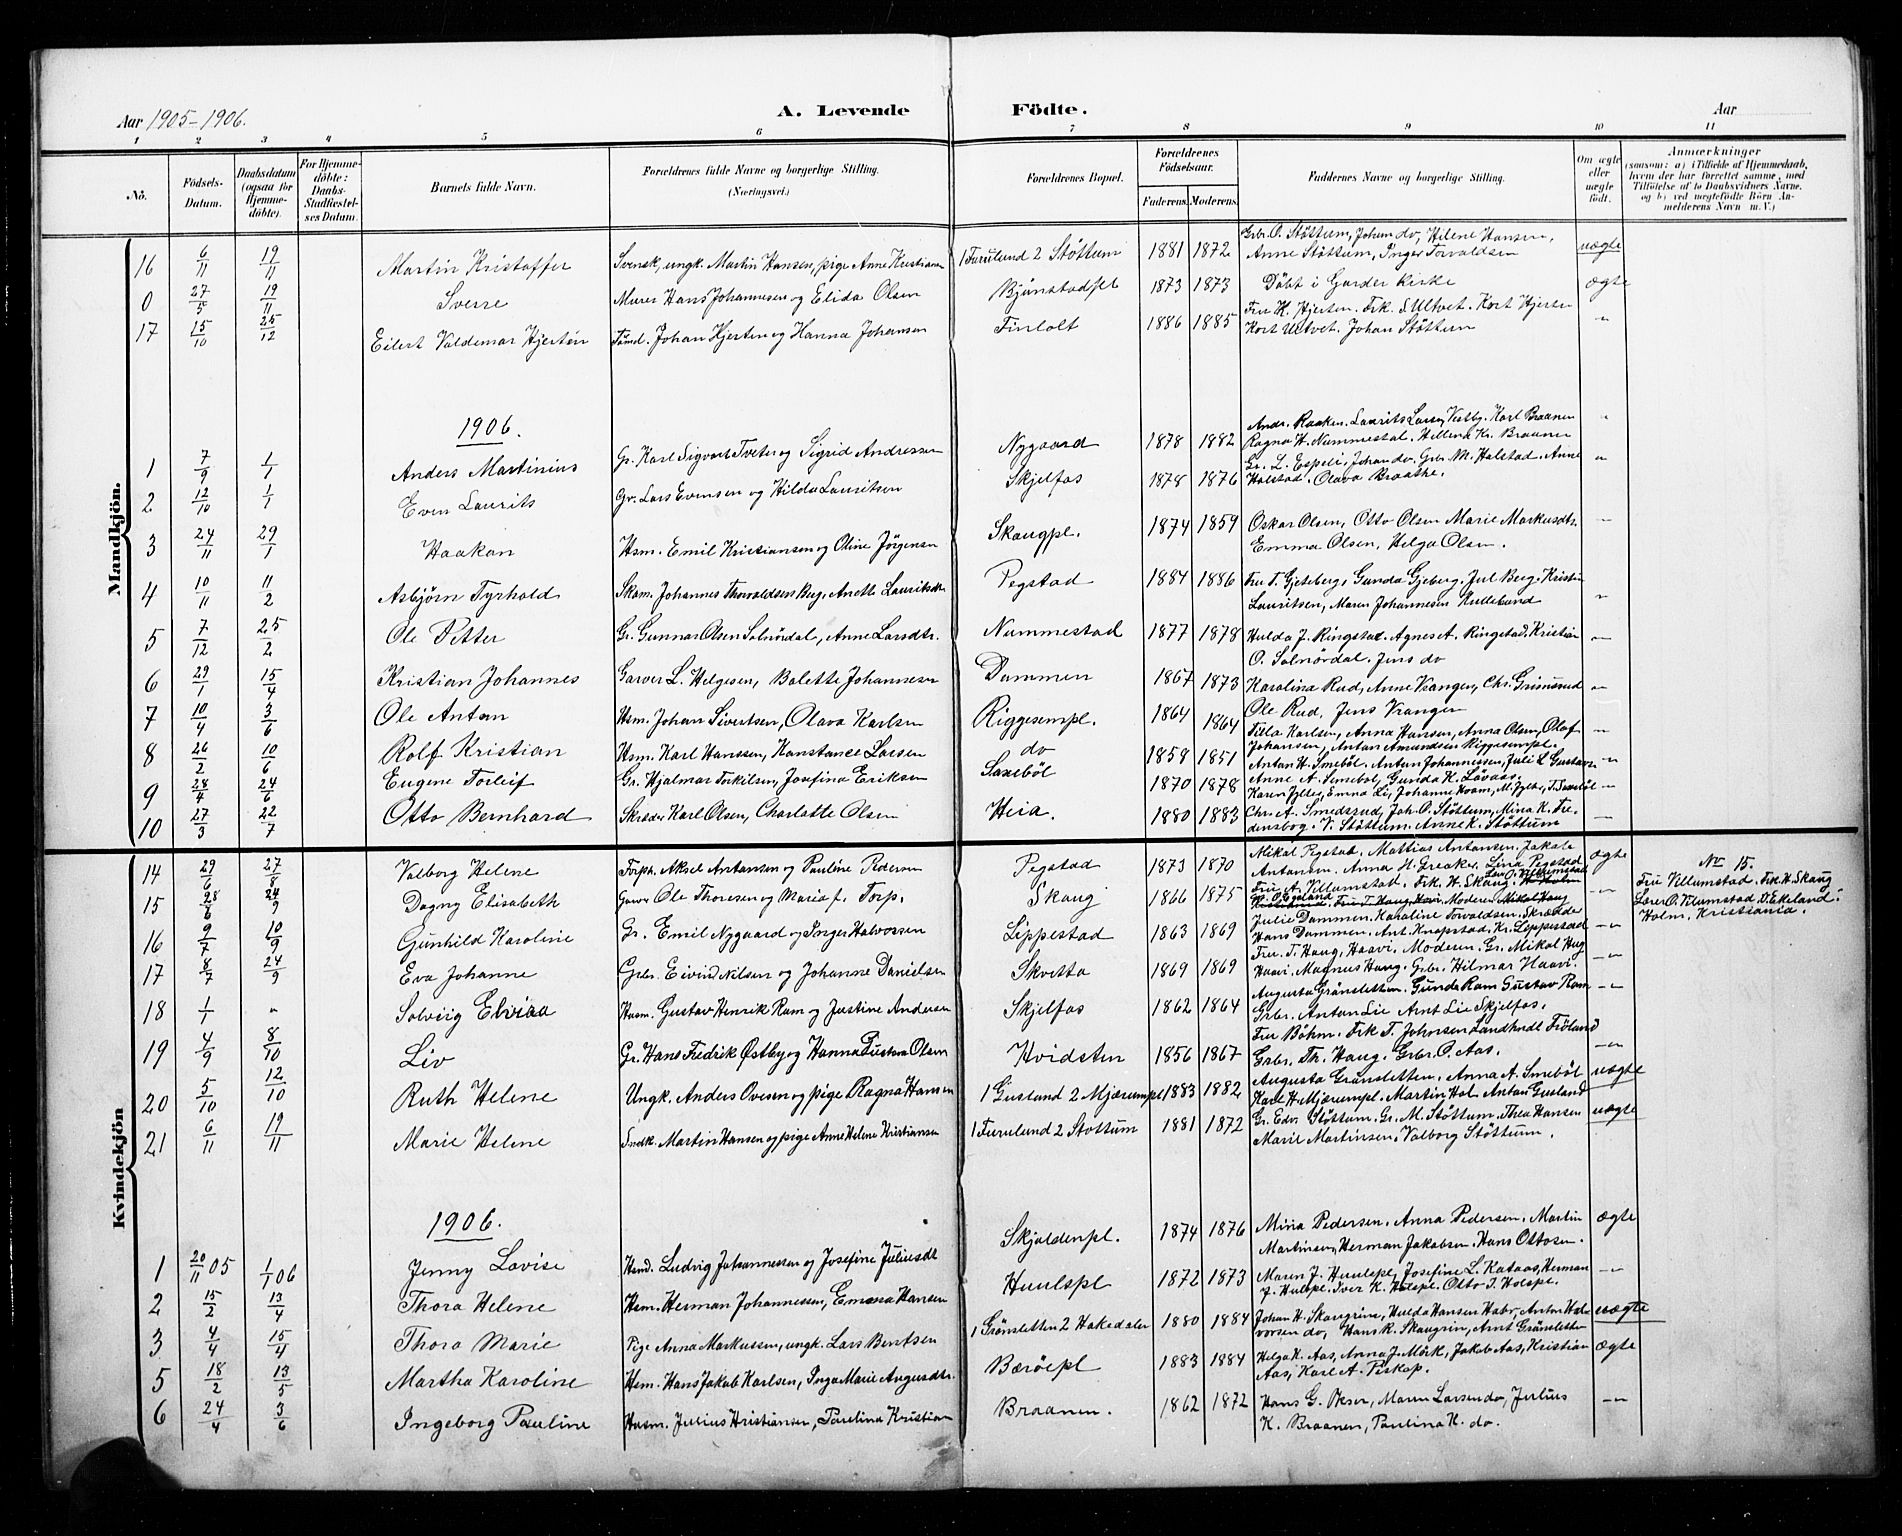 Aar 1905-1906.
A. Levende Födte.
Aar
1 2 3 4 5 6 7 8 9 10 11
No.
Födsels-Datum.
Daabsdatum (ogsaa for Hjemmedöbte).
For Hjemmedöbte: Daabs-Stadfæstelses Datum.
Barnets fulde Navn.
Forældrenes fulde Navne og borgerlige Stilling. (Næringsvei.)
Forældrenes Bopæl.
Forældrenes Födselsaar.
Faderens. Moderens.
Faddernes Navne og borgerlige Stilling.
Om ægte eller uægte födt.
Anmærkninger
(saasom: a) i Tilfælde af Hjemmedaab, hvem der har forrettet samme, med Tilföielse af to Daabsvidners Navne, og b) ved uægtefödte Börn Anmelderens Navn m. V.)
Mandkjön.
16 6/11 19/11 Martin Kristoffer Svensk, ungk. Martin Hansen, pige Anne Kristiansen 1 Furulund 2 Støttum 1881 1872 Grbr. O. Støttum, Johan do, Helene Hansen, uægte
Anne Støttum, Inger Torvaldsen
0 27/5 19/11 Sverre Murer Hans Johannesen og Elida Olsen 1873 1873 Döbt i Garder Kirke ægte
17 15/10 25/12 Eilert Valdemar Hjertén Johan Hjerten og Hanna Johansen 1886 1885 Fru H. Hjerten. Frk. S. Ultvet. Kort Hjerten "
Kort Ultvet. Johan Støttum
1906.
1 7/9 1/1 Anders Martinius Gr. Karl Sigvart Tveter og Sigrid Andressen Nygaard 1878 1882 Andr. Raaken. Laurits Larsen, Vestby. Karl Braanen "
Ragna H. Nummestad. Kr. Braanen
2 12/10 1/1 Even Laurits Gr. Lars Evensen og Hilda Lauritsen Skjelfos 1878 1876 Gr. L. Espeli, Johan do. Grbr. M. Halstad. Anne "
Halstad. Olava Braathe.
3 24/11 29/1 Haakon Hsm. Emil Kristiansen og Oline Jørgensen Skaugpl. 1874 1859 Oskar Olsen, Otto Olsen Marie Markusdtr. "
Emma Olsen, Helga Olsen.
4 10/11 11/2 Asbjørn Tyrhold Johannes Thorvaldsen Berg, Anette Lauritsdtr. Pegstad 1884 1886 Fru T. Gjeteberg, Gunda Gjeberg. Jul Berg. Kristin
Lauritsen, Maren Johannesen "
5 7/12 25/2 Ole Petter Gr. Gunnar Olsen Solnördal, Anne Larsdtr. Nummestad 1877 1878 Hulda J. Ringstad. Agnes A. Ringstad. Kristian "
O. Solnördal. Jens do
6 29/1 15/4 Kristian Johannes Garver L. Helgesen, Balette Johannesen Dammen 1867 1873 Karolina Rud, Anne Vrangen, Chr. Grimsrud "
7 10/4 3/6 Ole Anton Hsm. Johan Sivertsen, Olava Karlsen Riggesempl. 1864 1864 Ole Rud, Jens Vrangen
8 26/2 10/6 Rolf Kristian Hsm. Karl Hanssen, Konstance Larsen do 1858 1851 Tilla Karlsen, Anna Hansen, Anna Olsen, Olaf "
Johansen, Anton Amundsen Riggesempl.
9 28/4 24/6 Eugene Torleif Gr. Hjalmar Torkilsen, Josefina Eriksen Saxebøl 1870 1878 Anton H. Smebøl. Anton Johannessen, Juli L. Gustavs "
Anne A. Smebøl, Gunda K. Løvaas.
10 27/3 22/7 Otto Bernhard Skræder Karl Olsen, Charlotte Olsen Heia. 1880 1883 Chr. A. Smedsrud, Joh. O. Støttum, Mina K. Fre- "
densborg. V. Støttum. Anne K. Støttum
Kvindekjön
14 29/6 27/8 Valborg Helene Aksel Antonsen og Pauline Pedersen Pegstad 1873 1870 Mikal Pegstad. Mattias Antonsen. Jakob ægte
Antonsen. Anna H. Greaker. Lina Pegstad
15 28/6 24/9 Dagny Elisabeth Garver Ole Thoresen og Maria f. Torp. Skaug 1866 1875 Fru A. Villumstad. Frk. H. Skaug. "
No 15.
Fru Villumstad. Frk. H. Skaug
Lærer O. Vilumstad. O. Ekeland.
Holm, Kristiania.
16 9/7 10/9 Gunhild Karoline Gr. Emil Nygaard og Inger Halvorsen Lippestad 1863 1869 Julie Dammen. Karoline Torvaldsen. Skrædder "
Hans Dammen. Ant. Knapstad. Kr. Lippestad
17 8/7 24/9 Eva Johanne Grbr. Eivind Nilsen og Johanne Danielsen Skvetta 1869 1869 Fru. T. Haug, Haavi. Moderen. Gr. Mikal Hug "
Haavi. Magnus Haug. Grbr. Hilmar Haavi.
18 1/1 " Solveig Elvira Husm. Gustav Henrik Ram og Justine Andersen Skjelfos 1862 1864 Augusta Grønsletten. Gunda Ram Gustav Ram "
Grbr. Anton Lie Arnt Lie Skjelfos.
19 4/9 8/10 Liv Gr. Hans Fredrik Østby og Hanna Gustava Olsen Hvidsten 1856 1867 Fru Böhm. Frk T. Johnsen Landhndl. Fröland "
Grbr. Th. Haug. Grbr. O. Aas.
20 5/10 12/10 Ruth Helene Ungk. Anders Ovesen og pige Ragna Hansen 1 Gusland 2 Mjærumpl 1883 1882 Augusta Grönsletten. Anna A. Smebøl uægte
Karl H. Mjærumpl. Martin Hol. Anton Gusland
21 6/11 19/11 Marie Helene Martin Hansen og pige Anne Helene Kristiansen 1 Furulund 2 Støttum 1881 1872 Gr. Edv. Støttum. Gr. M. Støttum. Thea Hansen uægte
Marie Martinsen, Valborg Støttum.
1906.
1 20/11 05 1/1 06 Jenny Lovise Hsmd. Ludvig Johannessen og Josefine Juliusdt Skjoldenpl. 1874 1876 Mina Pedersen. Anna Pedersen. Martin ægte
Martinsen, Herman Jakobsen. Hans Ottosen.
2 15/2 13/4 Thora Helene Hsm. Herman Johannessen, Emma Hansen Huulspl 1872 1873 Maren J. Huulspl, Josefine L. Kataas, Herman "
J. Hulspl. Iver K. Holspl. Otto J. Holspl.
3 4/4 15/4 Thora Marie Pige Anna Markussen, ungk. Lars Berntsen 1 Grönsletten 2 Hakedalen 1880 1884 Johan H. Skaugrim, Hulda Hansen Habo, Anton Hal- uægte
vorsen do, Hans K. Skaugrin, Arnt Grönsletten
5 18/2 13/5 Martha Karoline Hsm. Hans Jakob Karlsen, Inga Marie Augusdtr. Bærøepl 1883 1884 Helga K. Aas, Anna J. Mörk, Jakob Aas, Kristian ægte
Aas, Karl A. Piskop.
6 24/4 3/6 Ingeborg Pauline Husm. Julius Kristiansen, Paulina Kristian Braanen. 1862 1872 Hans G. Oksen, Maren Larsen do, Julius "
K. Braanen, Paulina K. do.